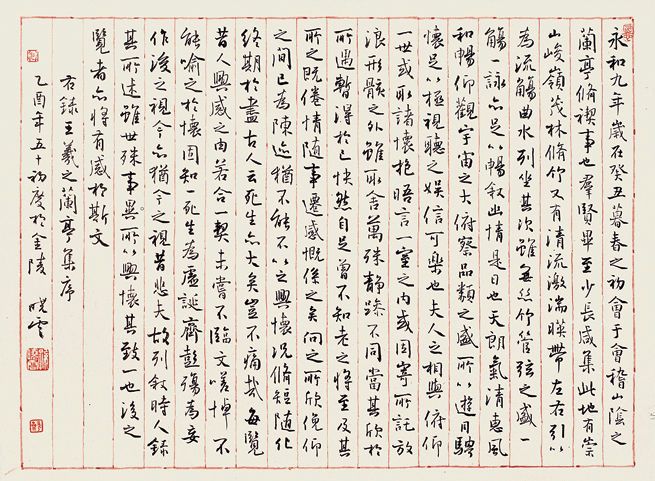 永和九年歲在癸丑暮春之初會于會稽山陰之
蘭亭脩禊事也羣賢畢至少長咸集此地有崇
山峻嶺茂林脩竹又有清流激湍暎帶左右引以
為流觴曲水列坐其次雖無絲竹管弦之盛一
觴一詠亦足以暢叙幽情是日也天朗氣清惠風
和暢仰觀宇宙之大俯察品類之盛所以遊目騁
懷足以極視聽之娱信可樂也夫人之相與俯仰
一世或取諸懷抱晤言一室之内或因寄所託放
浪形骸之外雖取舍萬殊静躁不同當其欣於
所遇暫得於己快然自足曾不知老之將至及其
所之既倦情隨事遷感慨係之矣向之所欣俛仰
之間已為陳迹猶不能不以之興懷况脩短隨化
終期於盡古人云死生亦大矣豈不痛哉每覽
昔人興感之由若合一契未嘗不臨文嗟悼不
能喻之於懷固知一死生為虚誕齊彭殤為妄
作後之視今亦猶今之視昔悲夫故列叙時人録
其所述雖世殊事異所以興懷其致一也後之
覽者亦將有感於斯文
右録王羲之蘭亭集序
乙酉年五十初度於金陵 晓雲